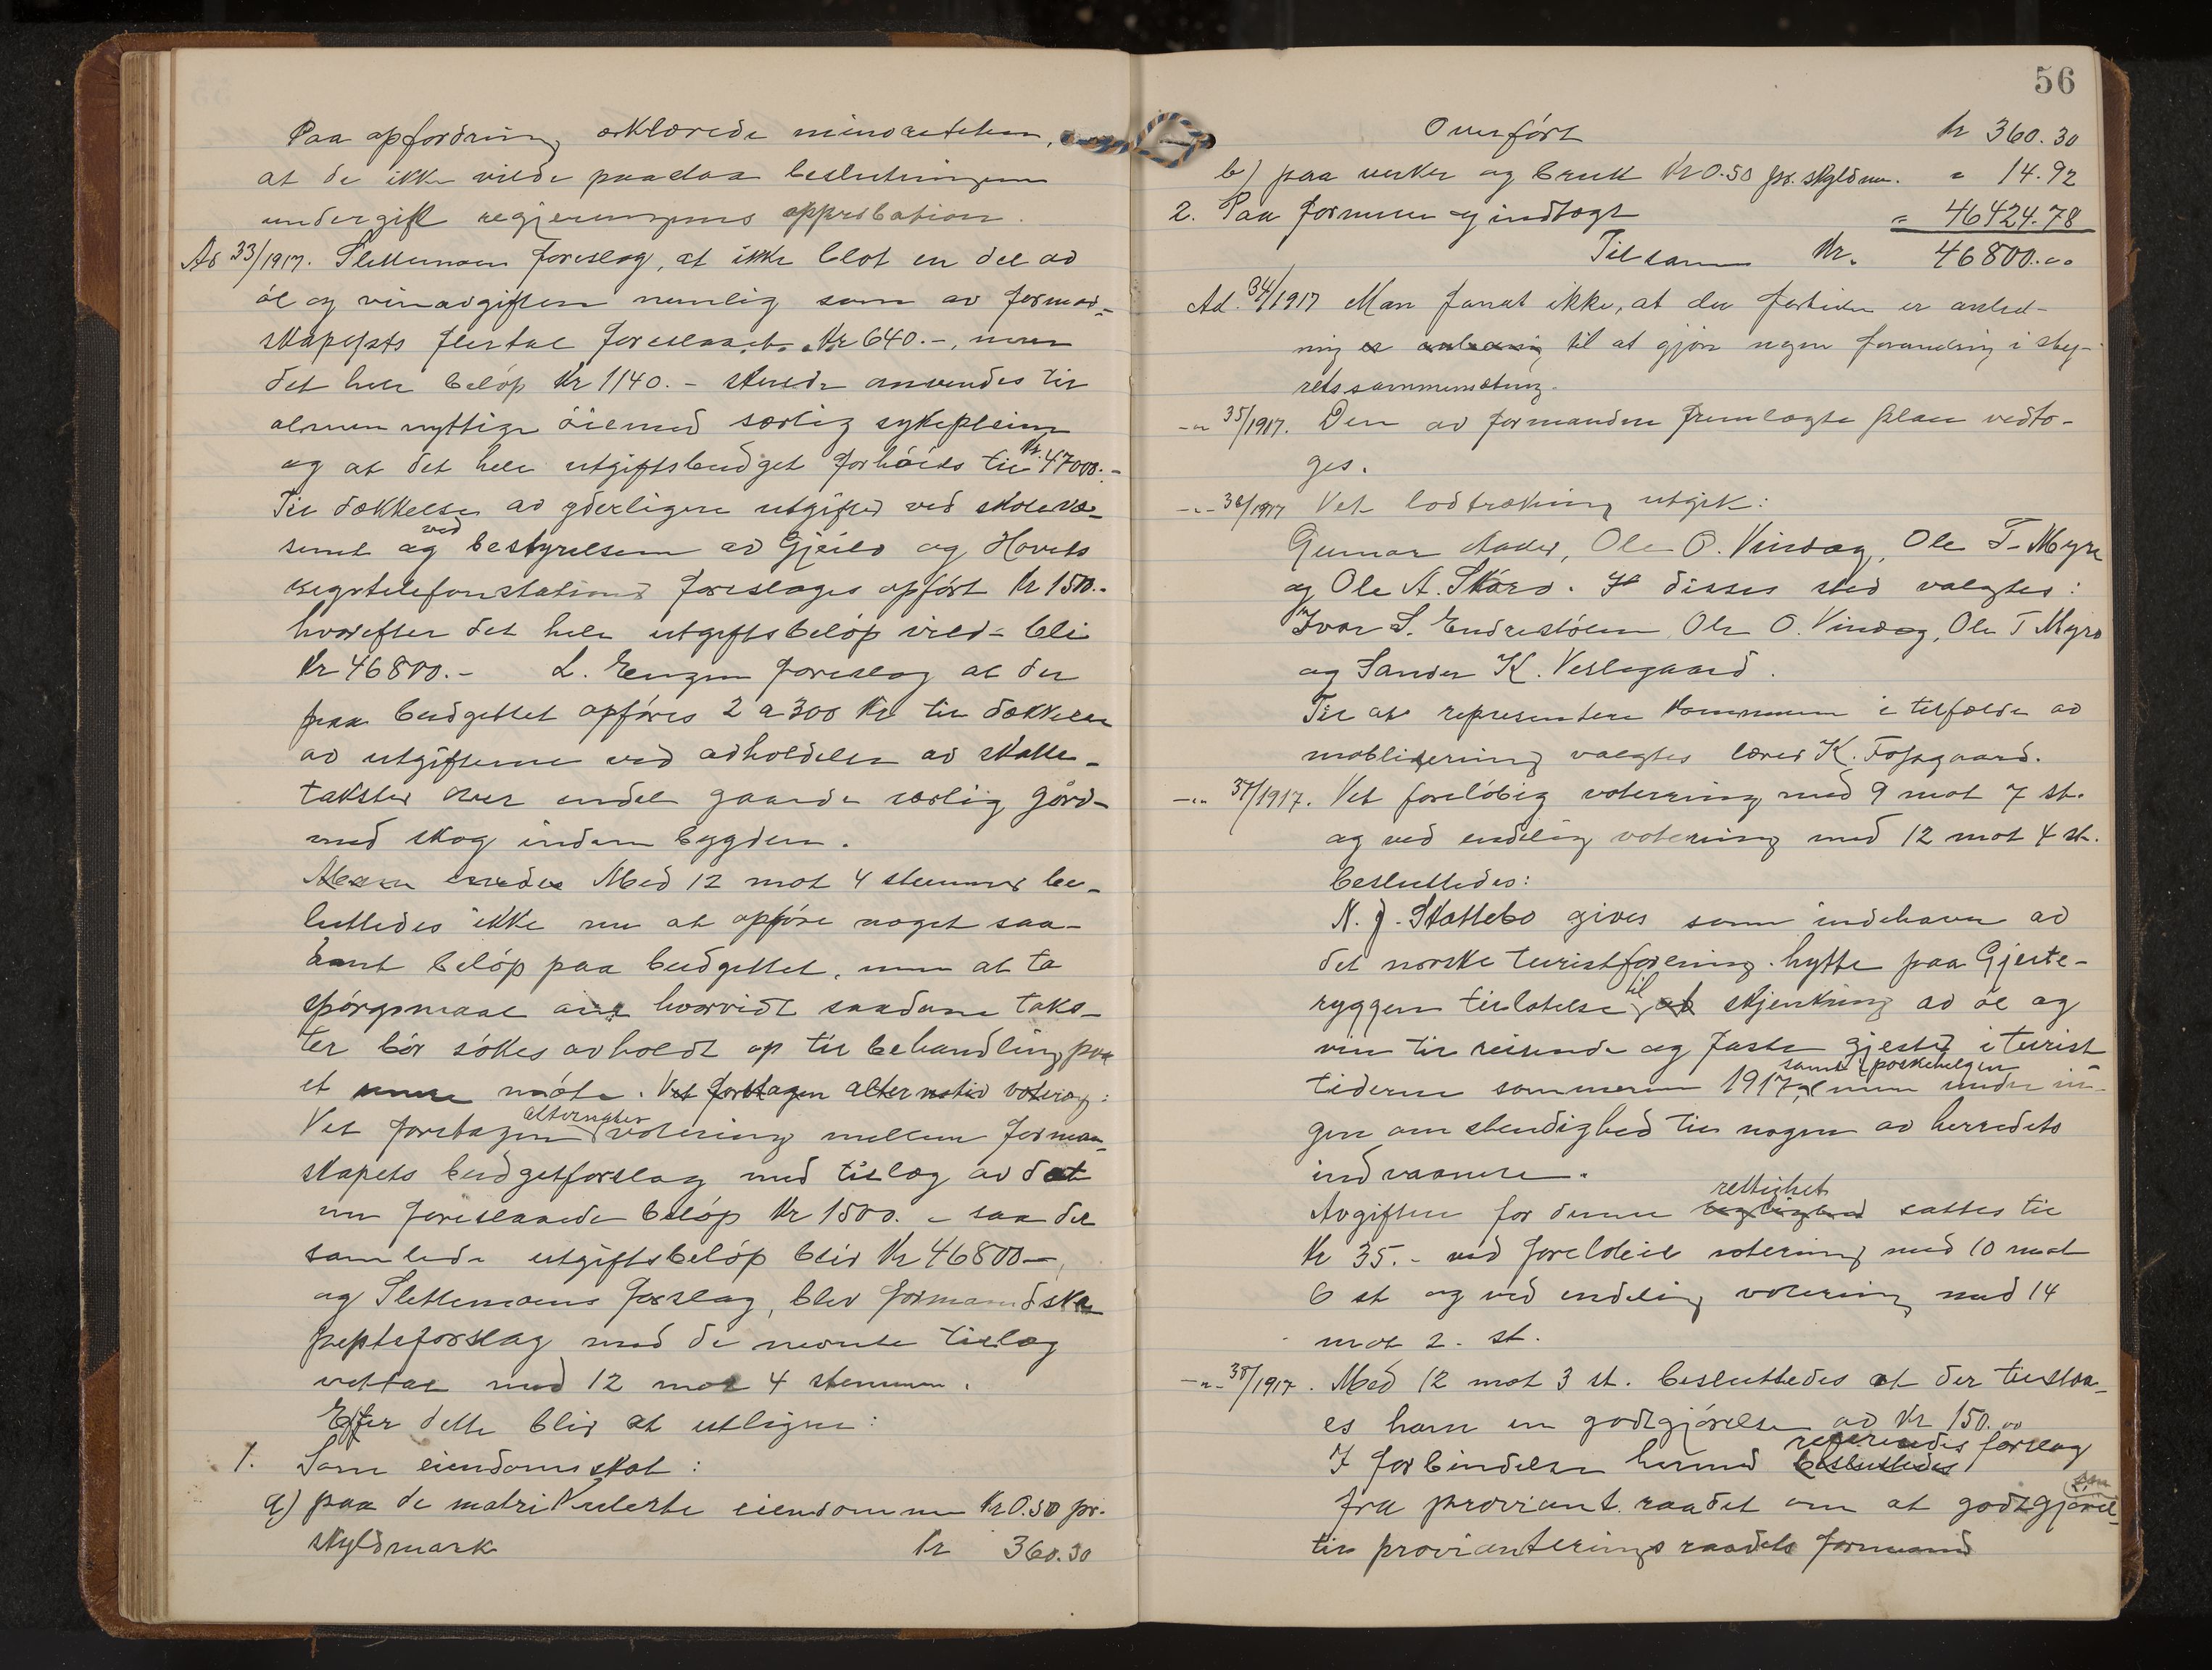 Paa opfordring erklærede minoriteten,
at de ikke vilde paadra beslutningen
undergit regjeringens approbation.
Ad 33/1917. Slettemoen foreslog, at ikke blot en del av
øl og vinavgiften nemlig som av formand-
skapets flertal foreslaaet Kr 640.-, men
det hele beløp Kr 1140.- skulde anvendes til
almennyttige øiemed særlig sykepleien
og at det hele utgiftsbudget forhøies til Kr. 47000.-
Til dækkelse av yderligere utgifter ved skolevæ-
senet og ved bestyrelsen av Gjeilo og Hovets
rikstelefonstationer foreslages opført Kr 1500.-
hvorefter det hele utgiftsbeløp vilde bli
Kr 46800.- L. Engen foreslog at der
paa budgettet opføres 2 a 300 Kr til dækkelse
av utgifterne ved avholdelse av skatte-
takster over endel gaarde særlig gård-
med skog inden bygden.
Man enedes Med 12 mot 4 stemmer be-
sluttedes ikke nu at opføre noget saa-
dant beløp paa budgettet, men at ta
spørgsmaal om hvorvidt saadanne taks-
ter bør søkes avholdt op til behandling paa
et senere møte. Vet foretagen alternativ votering:
Vet foretagen alternativ votering mellem forman-
skapets budgetforslag med tillæg av det
nu foreslaaede beløp Kr 1500.- saa det
samlede utgiftsbeløp blir Kr 46800.-,
og Slettemoens forslag, blev formandska-
pets forslag med de nevnte tillæg
vettat med 12 mot 4 stemmer.
Efter dette blir at utligne:
1. Som eiendomsskat:
a) paa de matrikulerte eiendomme Kr 0.50 pr.
skyldmark Kr 360.30
56
Overført Kr 360.30
b) paa verker og bruk Kr 0.50 pr. skyldm. " 14.92
2. Paa formue og indtægt " 46424.78
Tilsammen Kr. 46800.00
Ad. 34/1917 Man fandt ikke, at der fortiden er anled-
ning er anledning til at gjøre nogen forandring i sty-
rets sammensætning.
-"- 35/1917. Den av formanden fremlagte plan vedto-
ges.
-"- 36/1917 Vet lodtrækning utgik:
Gunnar Aaker, Ole O. Vindeg, Ole T. Myro
og Ole A. Skaro. I disses sted valgtes:
Ivar S. Endrestølen, Ole O. Vindeg, Ole T Myro
og Sander K. Veslegaard.
Til at representere kommunen i tilfælde av
moblisering valgtes lærer K. Fossgaard.
-"- 37/1917. Vet foreløbig votering med 9 mot 7 st.
og ved endelig votering med 12 mot 4 st.
besluttedes:
N. J. Skattebo gives som indehaver av
det norske turistforening. hytte paa Gjeite-
ryggen tillatelse til at skjenkning av øl og
vin til reisende og faste gjester i turist
tiderne sommeren 1917, samt i paaskehelgen men under in-
gen omstendighed til nogen av herredets
indvaanere.
Avgiften for denne rettighet sattes til
Kr 35.- ved foreløbig votering med 10 mot
6 st og ved endelig votering med 14
mot 2. st.
-"- 38/1917. Med 12 mot 3 st. besluttedes at der tilstaa-
es ham en godtgjørelse av Kr 150.00
I forbindelse hermed besluttedes refereredes forslag
fra proviant. raadet om at godtgjørel-
sen
til provianteringsraadets formand